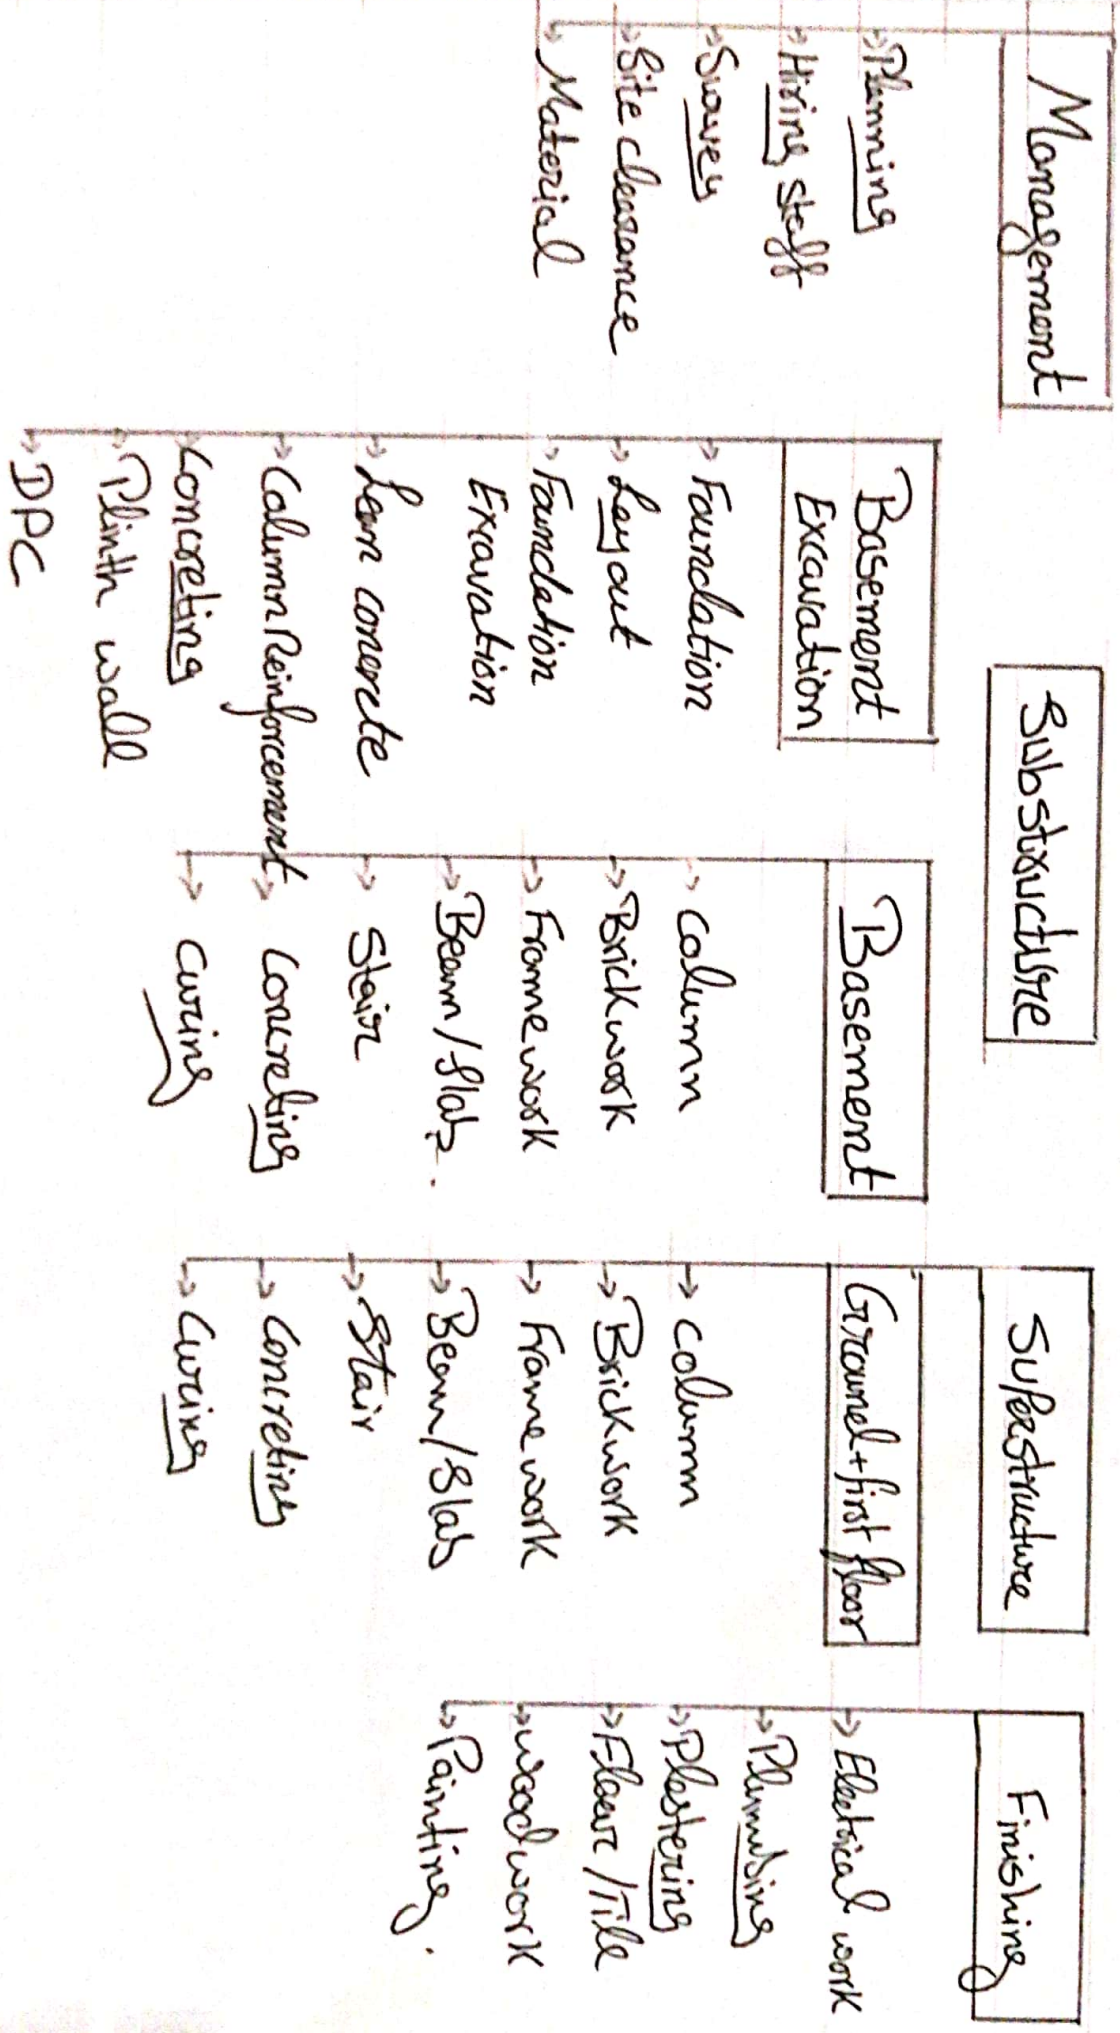 Management
Planning
Hiring staff
Survey
Site clearance
Material
Substructure
Basement
Excavation
Foundation
Layout
Foundation
Excavation
Lean concrete
Column Reinforcement
Concreting
Plinth wall
DPC
Basement
Column
Brickwork
Framework
Beam/Slab.
Stair
Concreting
Curing
Superstructure
Ground+first floor
Column
Brickwork
Framework
Beam/Slab
Stair
Concreting
Curing
Finishing
Electrical work
Plumbing
Plastering
Floor/Tile
Woodwork
Painting.